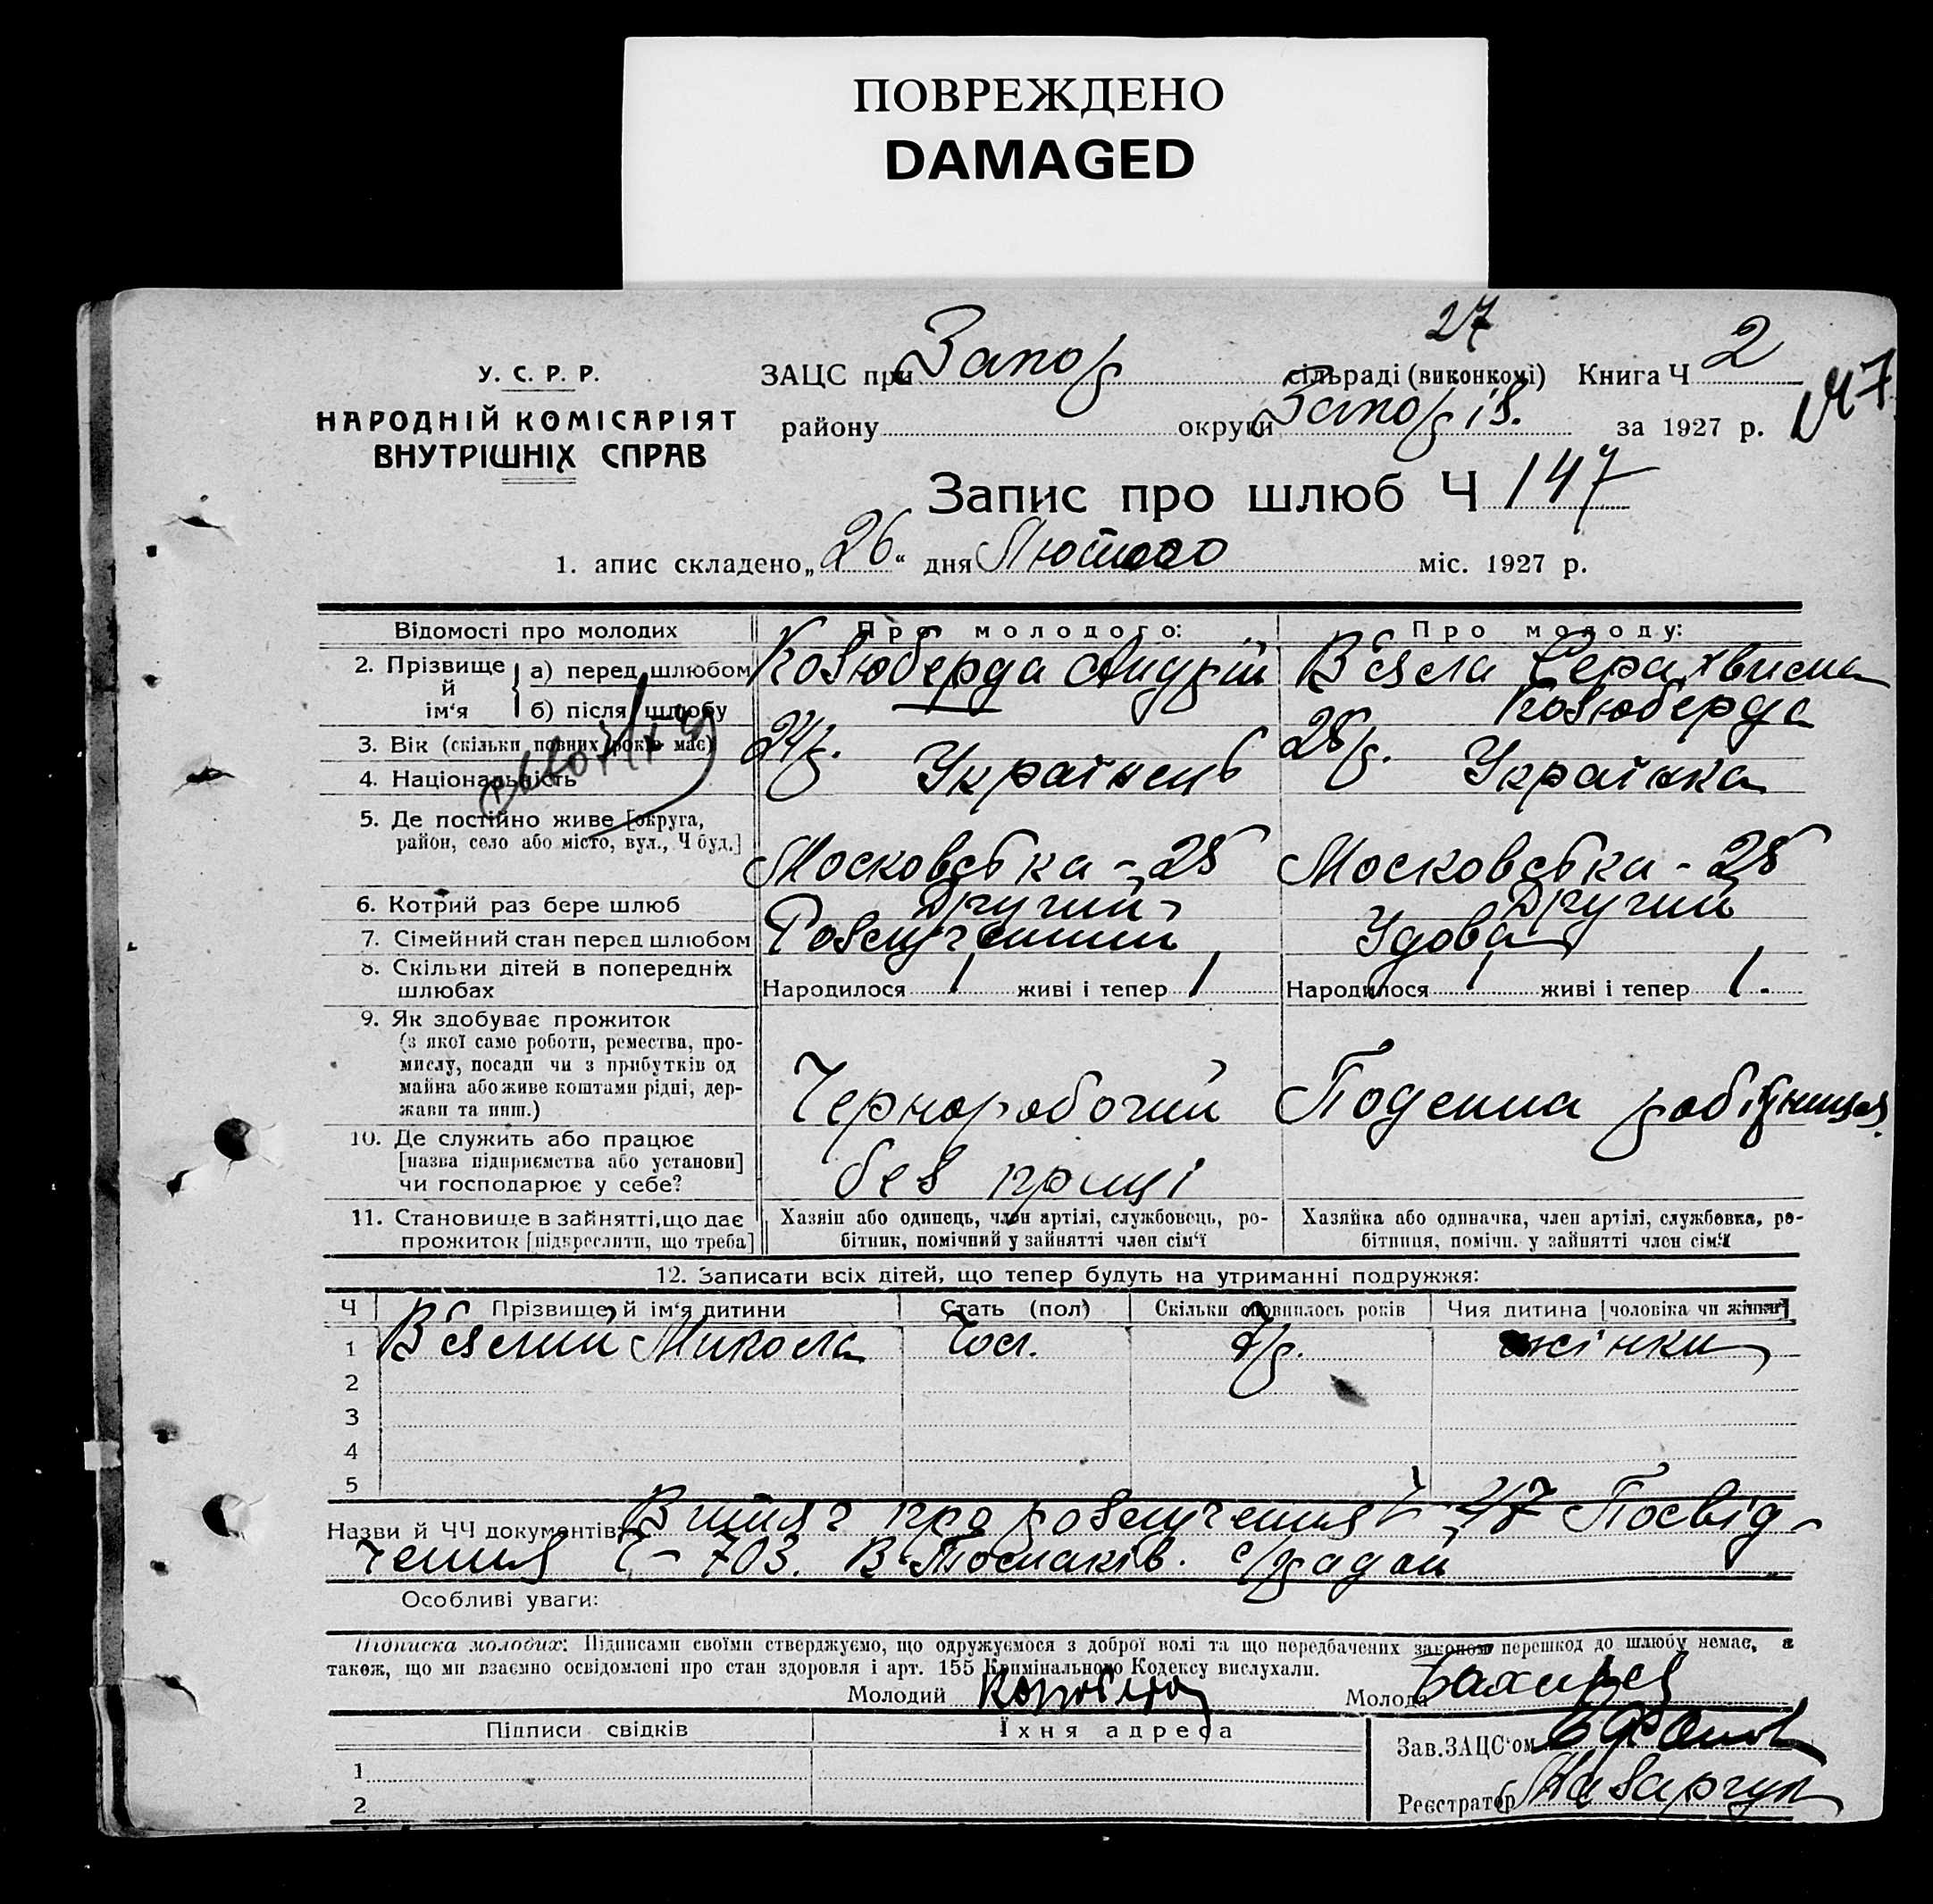 ПОВРЕЖДЕНО
DAMAGED
27
У. С. Р. Р.
НАРОДНІЙ КОМІСАРІЯТ
ВНУТРІШНІХ СПРАВ
ЗАЦС при Запор сільраді (виконкомі) Книга Ч 2
району округи Запоріз. за 1927 р.
Запис про шлюб Ч 147
1. апис складено „26“ дня Лютого міс. 1927 р.
Відомості про молодих Про молодого: Про молоду:
2. Прізвище й ім‘я а) перед шлюбом Козюберда Андрій В'язла Серахвима
б) після шлюбу Козюберда
3. Вік (скільки повних років має) 24р. 28р.
4. Національність Українець Українка
5. Де постійно живе [округа,
район, село або місто, вул., Ч буд.] Московська - 28 Московська - 28
6. Котрий раз бере шлюб Другий Другий
7. Сімейний стан перед шлюбом Розлучений Удова
8. Скільки дітей в попередніх
шлюбах Народилося 1 живі і тепер 1 Народилося 1 живі і тепер 1.
9. Як здобуває прожиток
(з якої само роботи, ремества, про-
мислу, посади чи з прибутків од
майна або живе коштами рідні, дер-
жави та инш.) Чернробочий Поденна робітниця
10. Де служить або працює
[назва підприємства або установи]
чи господарює у себе? без праці
11. Становище в зайнятті, що дає
прожиток [підкреслити, що треба]
Хазяін або одинець, член артілі, службовець, ро-
бітник, помічний у зайнятті член сім‘ї
Хазяйка або одиначка, член артілі, службовка, ро-
бітниця, помічн. у зайнятті член сім‘ї
12. Записати всіх дітей, що тепер будуть на утриманні подружжя:
Ч Прізвище й ім‘я дитини Стать (пол) Скільки сповнилось років Чия дитина [чоловіка чи жінки]
1 В'язлий Микола Чол. 7р. жінки
2
3
4
5
Назви й ЧЧ документів: Витяг про розлучення Ч 47 Посвід-
чення Ч - 703. В-Токмаків. с/радой
Особливі уваги:
Підписка молодих: Підписами своїми стверджуємо, що одружуємося з доброї волі та що передбачених законом перешкод до шлюбу немає, а
також, що ми взаємно освідомлені про стан здоровля і арт. 155 Кримінального Кодексу вислухали.
Молодий Молода
Підписи свідків Їхня адреса
Зав.ЗАЦС‘ом
1
2
Реєстратор